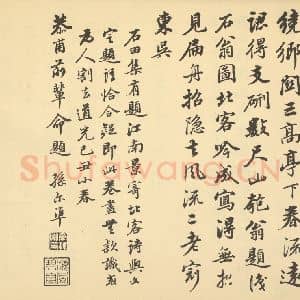 鄉閭三高亭下春流
認得支硎數尺山匏翁題後
石翁圖北客吟成寫得無
見扁舟招隱士風流二老
東吳
石田集有題江南景寄北客詩與文
定題詩恰合疑即此卷畫無款識
為人割去道光己丑小春
恭甫前輩命題 孫爾準
Shufawang.CN